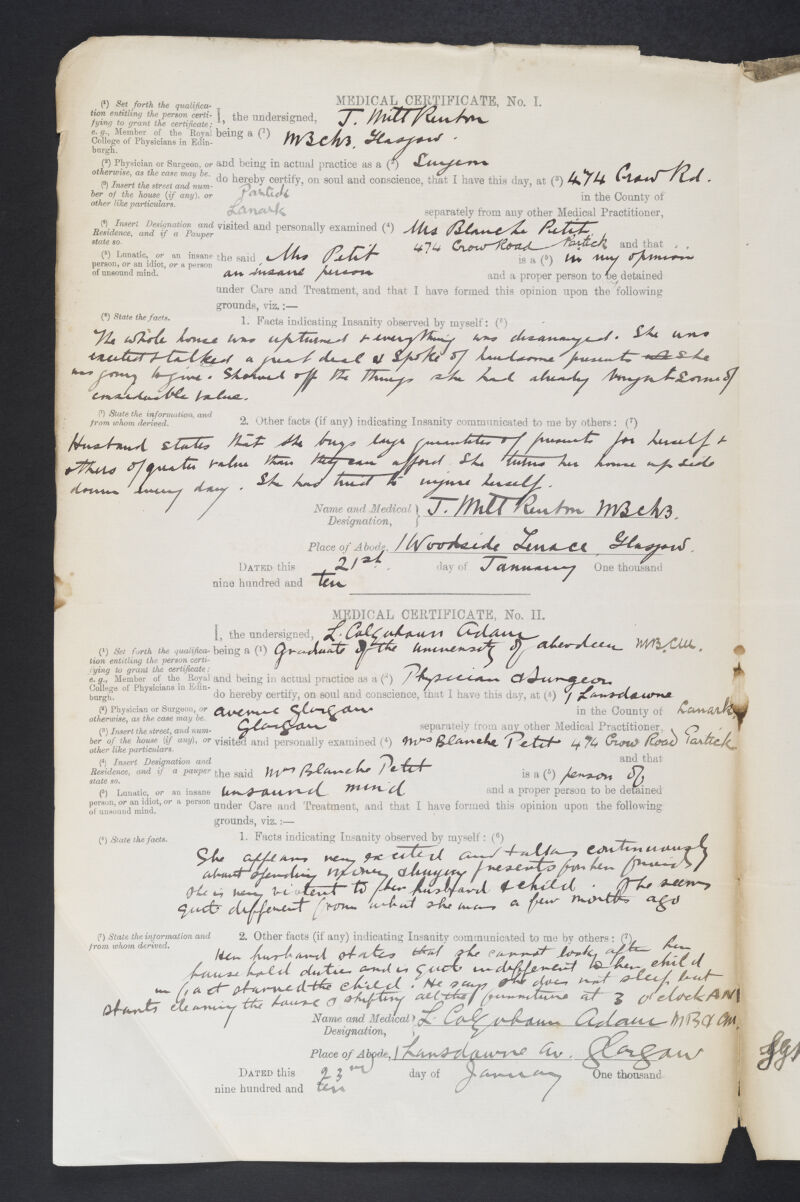 MEDICAL CERTIFICATE, No. I.
(¹) Set forth the qualifica-
tion entitling the person certi-
fying to grant the certificate;
e. g., Member of the Royal
College of Physicians in Edin-
burgh.
I, the undersigned, J. Mill Renton
being a (¹) M.B.Ch.B. Glasgow.
(²) Physician or Surgeon, or
otherwise, as the case may be.
and being in actual practice as a (²) Surgeon
(³) Insert the street and num-
ber of the house (if any), or
other like particulars.
do hereby certify, on soul and conscience, that I have this day, at (³) 474 Crow Rd.
Partick in the County of
Lanark separately from any other Medical Practitioner,
(⁴) Insert Designation and
Residence, and if a Pauper
state so.
visited and personally examined (⁴) Mrs Blanche Petit
474 Crow Road Partick and that
(⁵) Lunatic, or an insane
person, or an idiot, or a person
of unsound mind.
the said Mrs Petit is a (⁵) in my opinion
an insane person and a proper person to be detained
under Care and Treatment, and that I have formed this opinion upon the following
grounds, viz.:—
(⁶) State the facts.
1. Facts indicating Insanity observed by myself: (⁶)
The whole house was upturned & everything was disarranged. She was
excited & talked a great deal & spoke of handsome presents she
was going to give. Showed off the things she had already bought some of
considerable value.
(⁷) State the information, and
from whom derived.
2. Other facts (if any) indicating Insanity communicated to me by others: (⁷)
Husband states that she buys large quantities of presents for herself &
others of greater value than they can afford. She turns her house upside
down every day. She has tried to injure herself.
Name and Medical
Designation, J. Mill Renton MBChB.
Place of Abode, 1 Woodside Terrace, Glasgow.
DATED this 21st. day of January One thousand
nine hundred and ten
MEDICAL CERTIFICATE, No. II.
I, the undersigned, L. Colquhoun Adam
(¹) Set forth the qualifica-
tion entitling the person certi-
fying to grant the certificate:
e.g., Member of the Royal
College of Physicians in Edin-
burgh.
being a (¹) Graduate of the university of aberdeen M.B.C.M.
and being in actual practice as a (²) Physician & Surgeon
(²) Physician or Surgeon, or
otherwise, as the case may be.
do hereby certify, on soul and conscience, that I have this day, at (³) 1 Lansdowne
avenue Glasgow in the County of Lanark
(³) Insert the street, and num-
ber of the house (if any), or
other like particulars.
Glasgow separately from any other Medical Practitioner,
visited and personally examined (⁴) Mrs Blanche Petit 474 Crow Road Partick
(⁴) Insert Designation and
Residence, and if a pauper
state so.
and that
the said Mrs Blanche Petit is a (⁵) person of
(⁵) Lunatic, or an insane
person, or an idiot, or a person
of unsound mind.
unsound mind and a proper person to be detained
under Care and Treatment, and that I have formed this opinion upon the following
grounds, viz.:—
(⁶) State the facts.
1. Facts indicating Insanity observed by myself: (⁶)
She appears very excited and talks continuously
about spending money & buying presents for her friends
She is very violent to her husband & child. She seems
quite different from what she was a few months ago
(⁷) State the information and
from whom derived.
2. Other facts (if any) indicating Insanity communicated to me by others: (⁷)
Her husband states that she cannot look after her
household duties and is quite indifferent to her child
in fact starved the child. He says she does not sleep but
starts cleaning the house & shifting all the furniture at 3 o'clock AM
Name and Medical
Designation, L Colquhoun Adam MB & CM.
Place of Abode, 1 Lansdowne Av. Glasgow
DATED this 23rd day of January One thousand
nine hundred and ten